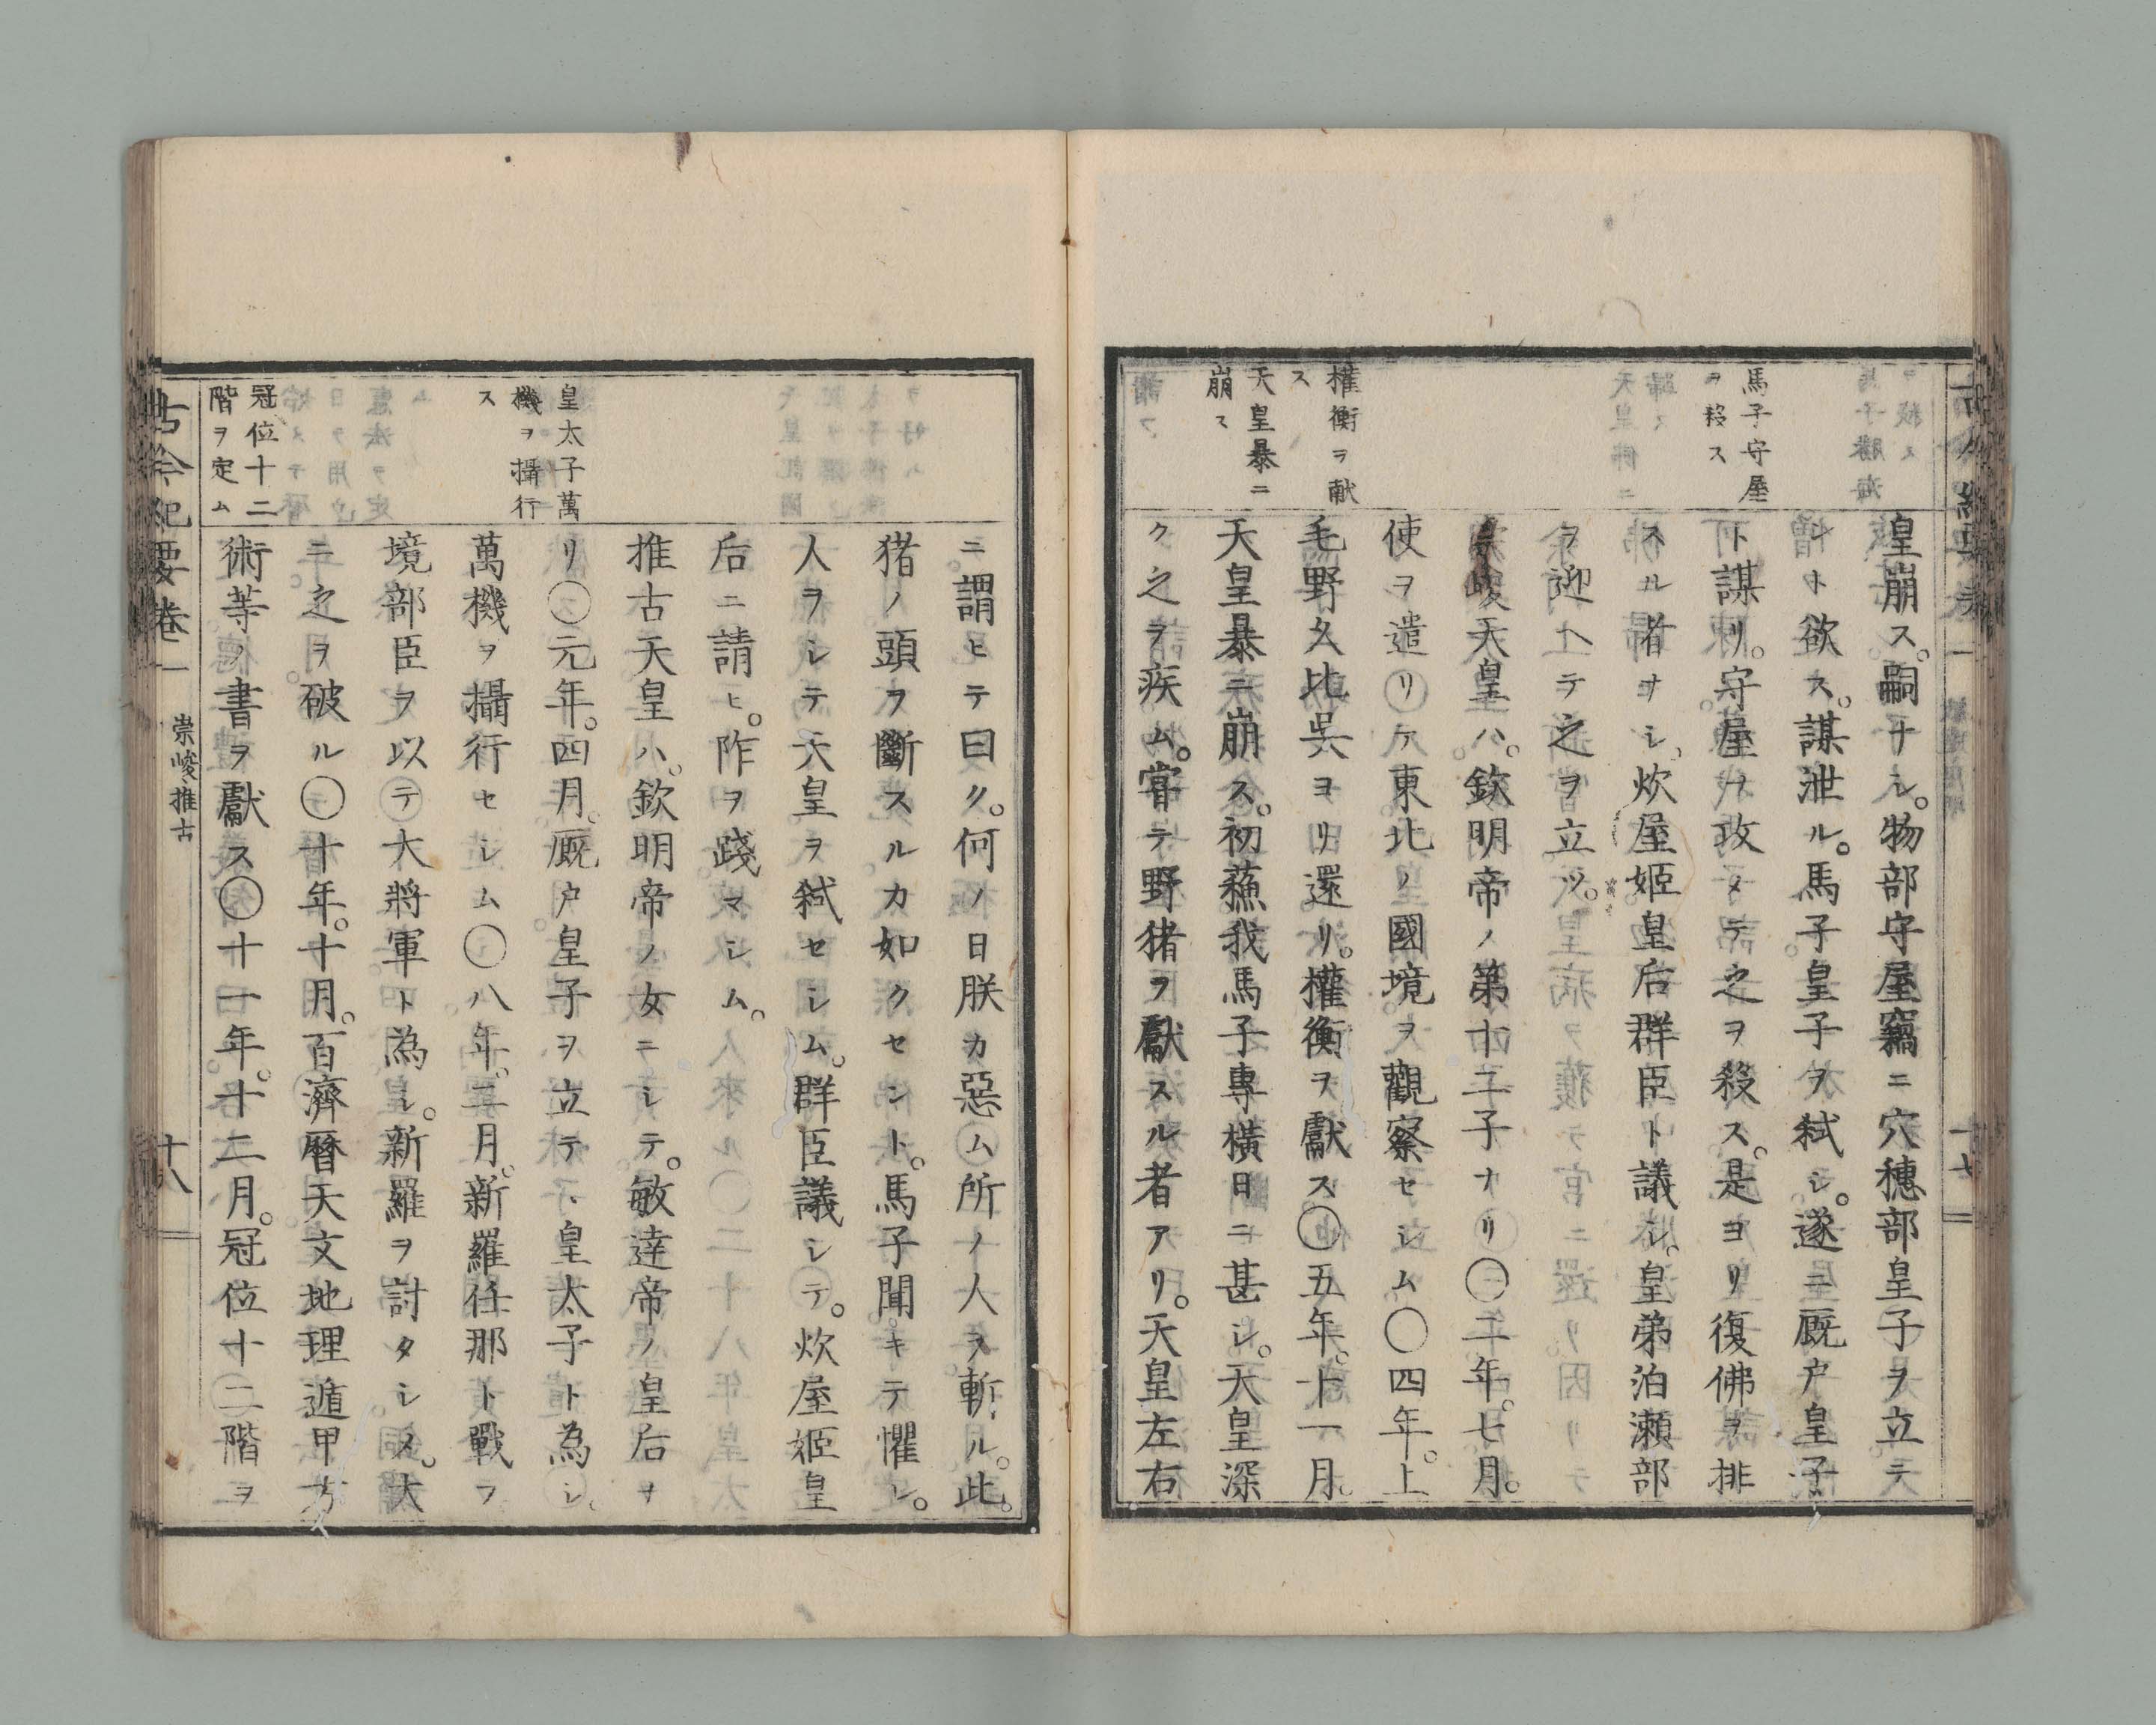 馬子守屋
ヲ殺ス
權衡ヲ献
ス
天皇暴ニ
崩ス
皇崩ス。嗣ナシ。物部守屋竊ニ穴穗部皇子ヲ立テ
ント欲ス。謀泄ル。馬子皇子ヲ弑シ。遂ニ厩戸皇子
ト謀リ。守屋ヲ攻メテ之ヲ殺ス。是ヨリ復佛ヲ排
スル者ナシ。炊屋姫皇后群臣ト議シ。皇弟泊瀬部
ヲ迎ヘテ之ヲ立ツ。
崇峻天皇ハ。欽明帝ノ第十二子ナリ〇二年。七月。
使ヲ遣リテ東北ノ國境ヲ觀察セシム〇四年。上
毛野久比呉ヨリ還リ。權衡ヲ獻ス〇五年。十一月。
天皇暴ニ崩ス。初蘓我馬子專横日ニ甚シ。天皇深
ク之ヲ疾ム。甞テ野猪ヲ獻スル者アリ。天皇左右
皇太子萬
機ヲ攝行
ス
冠位十二
階ヲ定ム
ニ謂ヒテ曰ク。何ノ日朕カ惡ム所ノ人ヲ斬ル。此。
猪ノ頭ヲ斷スルカ如クセント。馬子聞キテ懼レ。
人ヲシテ天皇ヲ弑セシム。群臣議シテ。炊屋姫皇
后ニ請ヒ。阼ヲ踐マシム。
推古天皇ハ。欽明帝ノ女ニシテ。敏達帝ノ皇后ナ
リ〇元年。四月。厩戸皇子ヲ立テ、皇太子ト為シ。
萬機ヲ攝行セシム〇八年。二月。新羅任那ト戰フ
境部臣ヲ以テ大將軍ト為シ。新羅ヲ討タシメ。大
ニ之ヲ破ル〇十年。十月。百濟曆天文地理遁甲方
術等ノ書ヲ獻ス〇十一年。十二月。冠位十二階ヲ
古今紀要卷一
崇峻 推古
十八